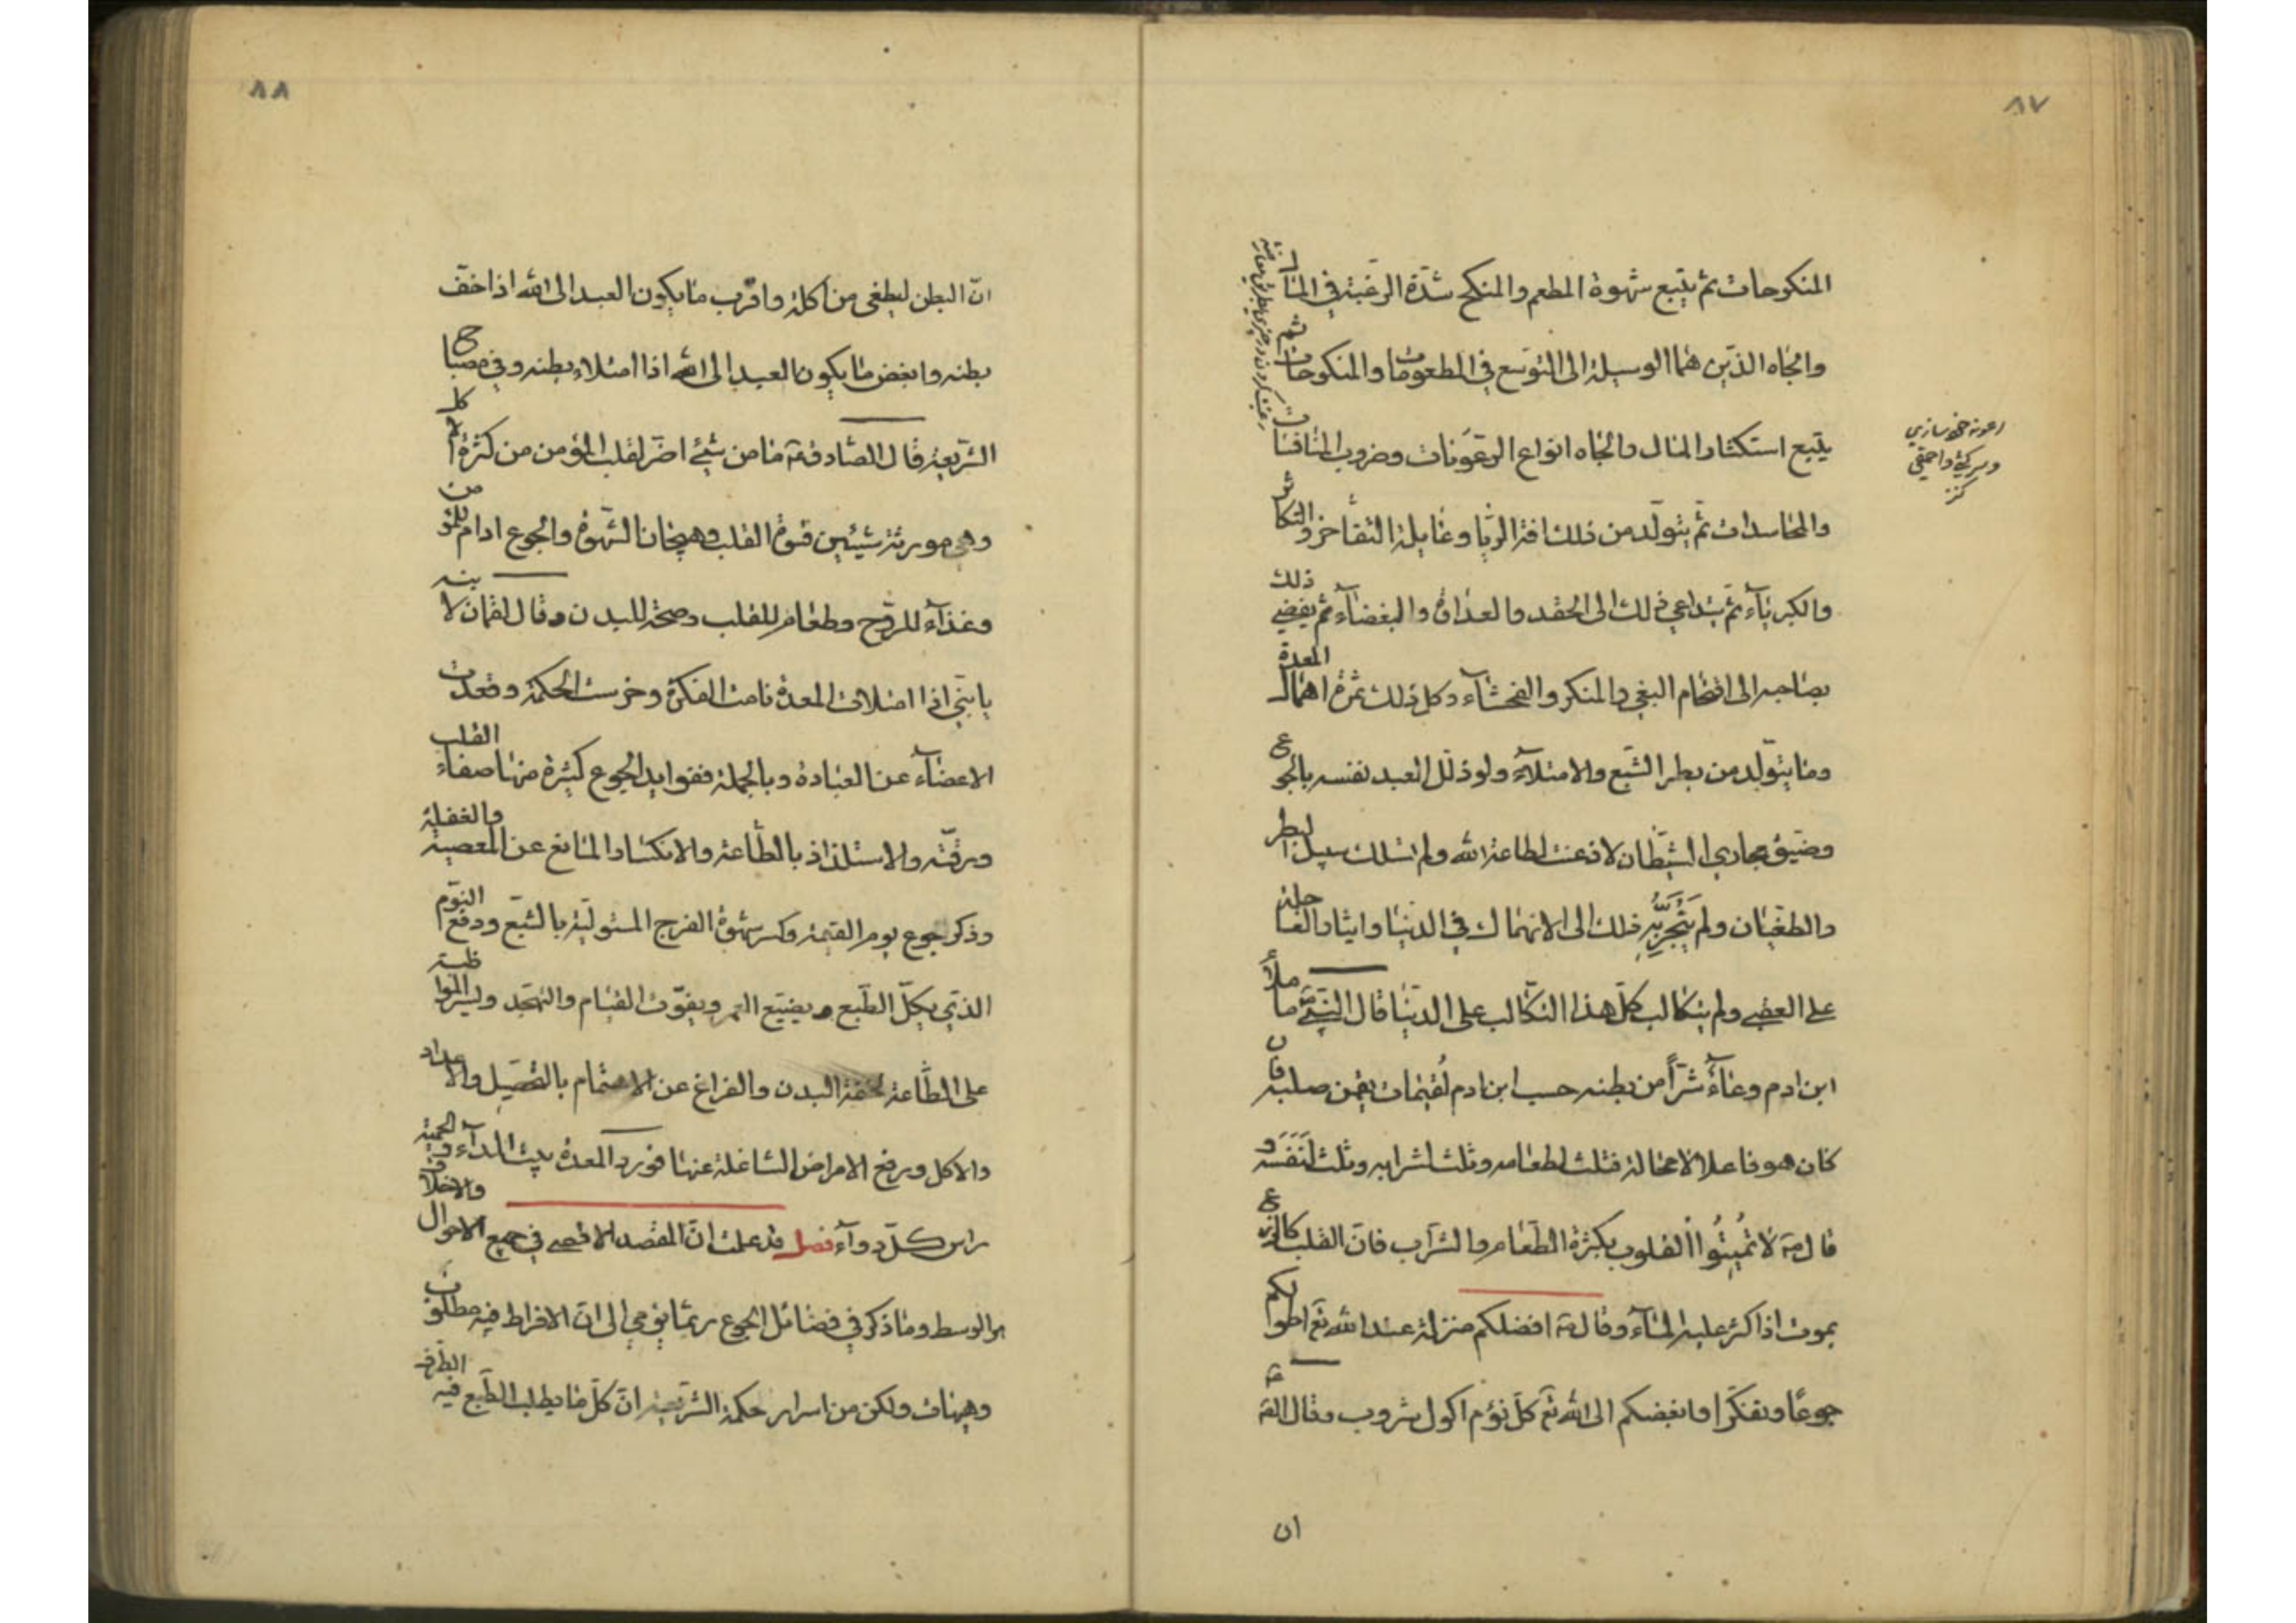 ٨٧
المنكوحات ثم يتبع شهوة المطعم والمنكح شدّة الرّغبة في المال
والجاه الذين هما الوسيلة الى التوسع في المطعومات والمنكوحات ثم
يتبع استكثار المال والجاه انواع الرّعونات وضروب المنافسات
والمحاسدات ثمّ يتولّد من ذلك افة الرّيا وغايلة التفاخر والتكاثر
والكبرياء ثمّ يتداعي ذلك الى الحقد والعداوة والبغضاء ثم يفضي ذلك
بصاحبه الى اقتحام البغي والمنكر والفحشاء وكل ذلك ثمرة اهمال المعدة
وما يتولّد من بطر الشبع والامتلاء ولو ذلّل العبد نفسه بالجوع
وضيّق مجاري الشيطان لاذعنت لطاعة الله ولم تسلك سبيل البطر
والطغيان ولم يَنْجَرَّ بِهِ ذلك الى الانهماك في الدنيا وايثار العاجلة
على العقبى ولم يتكالب كلّ هذا التكالب على الدّنيا قال النّبيّ ص ما ملأ
ابن ادم وعاءً شرّاً من بطنه حسب ابن ادم لُقيمات يقمن صلبه فان
كان هو فاعلا لا محالة فثلث لطعامه وثلث لشرابه وثلث لنَفَسَه و
قال ص لا تُميتُوا القلوب بكثرة الطّعام والشّراب فانّ القلب كالزرع
يموت اذا كثر عليه الماء وقال ص افضلكم منزلة عند الله تع اطولكم
جوعًا وتفكّرا وابغضكم الى الله تع كلّ نؤم اكول شروب وقال الصّ ع
ان
رعونة خود سازي
وسركشي واحمقي
كنز
٨٨
انّ البطن ليطغى من اكلة واقرب ما يكون العبد الى الله اذا خفّ
بطنه وابغض ما يكون العبد الى الله اذا امتلاء بطنه وفي مصباح
الشّريعة قال الصّادق ع ما من شيئ اضرّ لقلب المؤمن من كثرة الاكل
وهي مورثة شيئين قسوة القلب وهيجان الشّهوة والجوع ادام للمؤمن
وغذاء للرّوح وطعام للقلب وصحّة للبدن وقال لقمان لابنه
يا بنيّ اذا امتلات المعدة نامت الفكرة وخرست الحكمة وقعدت
الاعضاء عن العبادة وبالجملة ففوايد الجوع كثيرة منها صفاء القلب
ورقّته والاستلذاذ بالطّاعة والانكسار المانع عن المعصية والغفلة
وذكر جوع يوم القيمة وكسر شهوة الفرج المستولية بالشبع ودفع النوّم
الذي يكلّ الطّبع و يضيّع العمر ويفوّت القيام والتهجّد وليسر المواظبة
على الطّاعة لخفة البدن والفراغ عن الاهتمام بالتحصيل والاعداد
والاكل ورفع الامراض الشاغلة عنها فورد المعدة بيت الداء والحمية
راس كلّ دواء فصل قد علمت انّ المقصد الاقصى في جميع الاحوال والاخلاق
هو الوسط وما ذكر في فضائل الجوع ربّما يؤمي الى انّ الافراط فيه مطلوب
وهيهات ولكن من اسرار حكمة الشّريعة انّ كلّ ما يطلب الطّبع فيه الطّرف